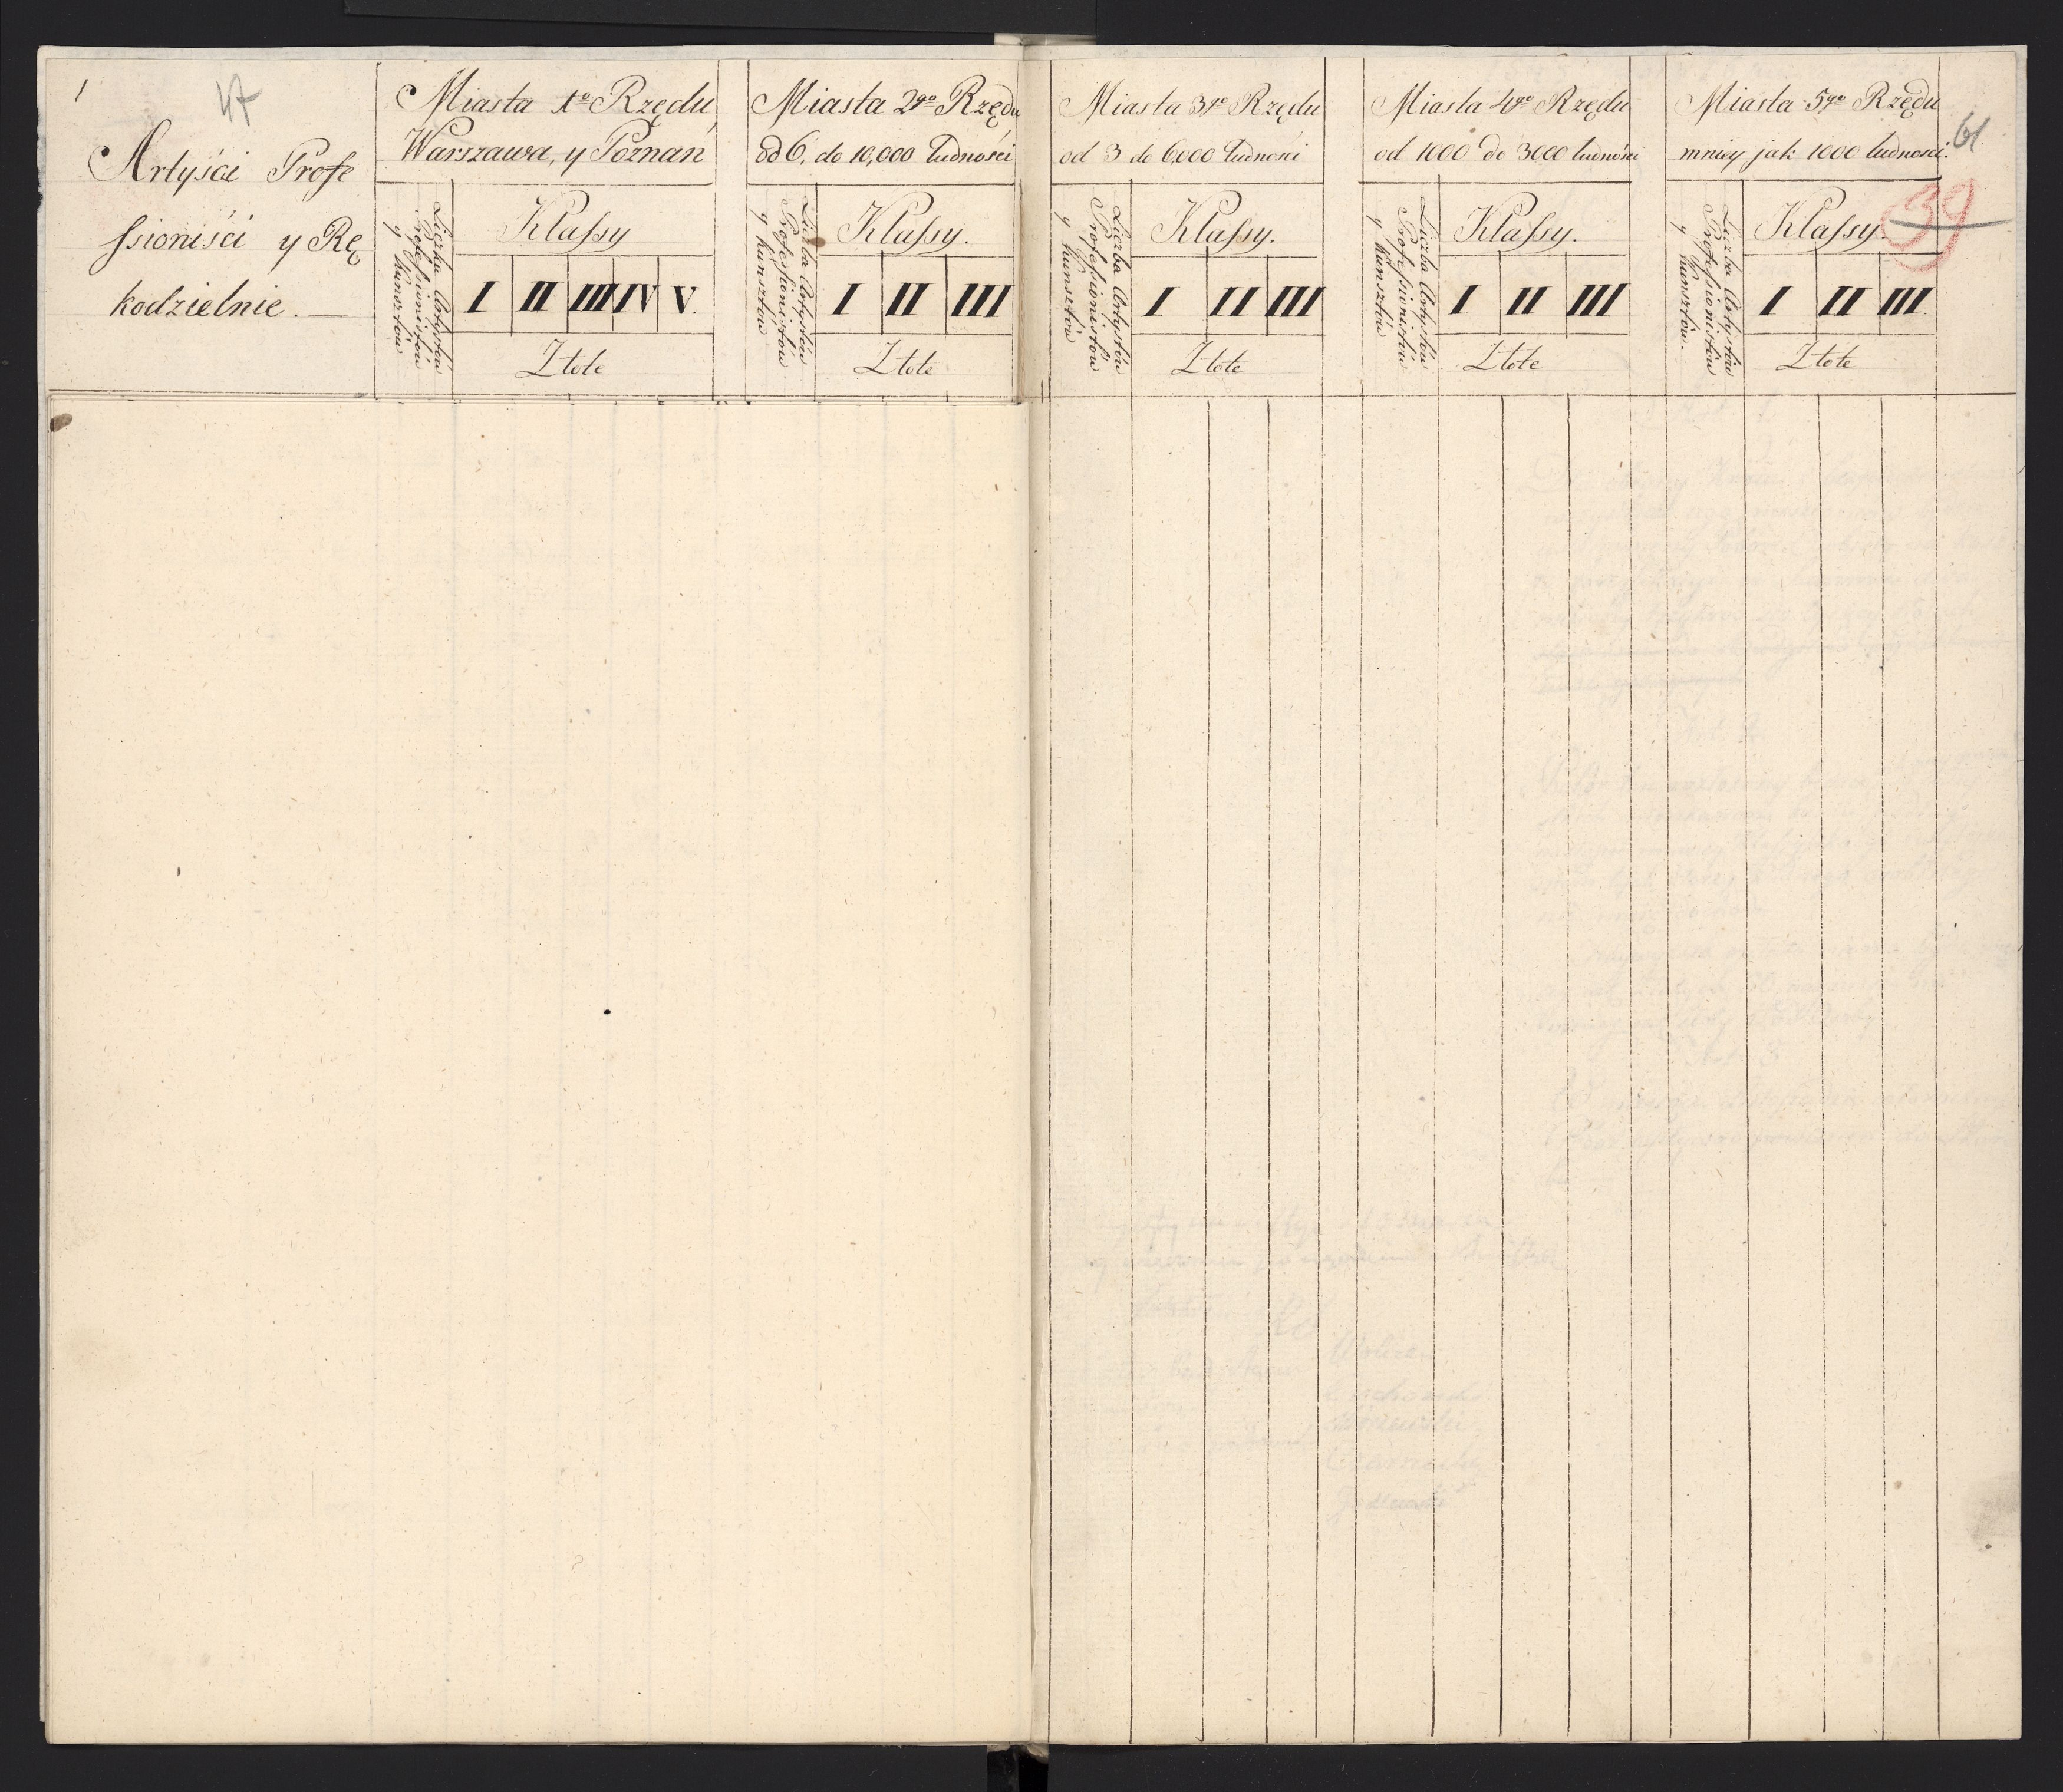 1
47
Artyści Profe
ssioniści y Rę
kodzielnie. —
Miasta 1º Rzędu
Warszawa, y Poznań
Liczba Artystów
Professionistów
y Kunsztów
Klassy
I II III IV V.
Złote
Miasta 2go Rzędu
od 6, do 10,000 ludności
Liczba Artystów
Professionistów
y Kunsztów
Klassy.
I II III
Złote
Miasta 3go Rzędu
od 3 do 6,000 ludności
Liczba Artystów
Professionistów
y Kunsztów
Klassy.
I II III
Złote
Miasta 4go Rzędu
od 1000 do 3000 ludności
Liczba Artystów
Professionistów
y Kunsztów
Klassy.
I II III
Złote
Miasta 5go Rzędu
mniey jak 1000 ludności.
Liczba Artystów
Professionistów
y Kunsztów.
Klassy.
I II III.
Złote
61
39